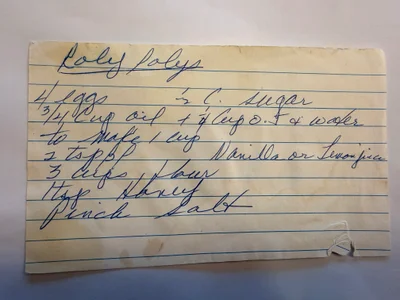 Roly Polys
4 eggs ½ C. sugar
3/4 Cup oil + ¼ cup O.J & water
to make 1 cup
2 tsp Vanilla or Lemon juice
3 cups flour
1 tsp Honey
Pinch Salt